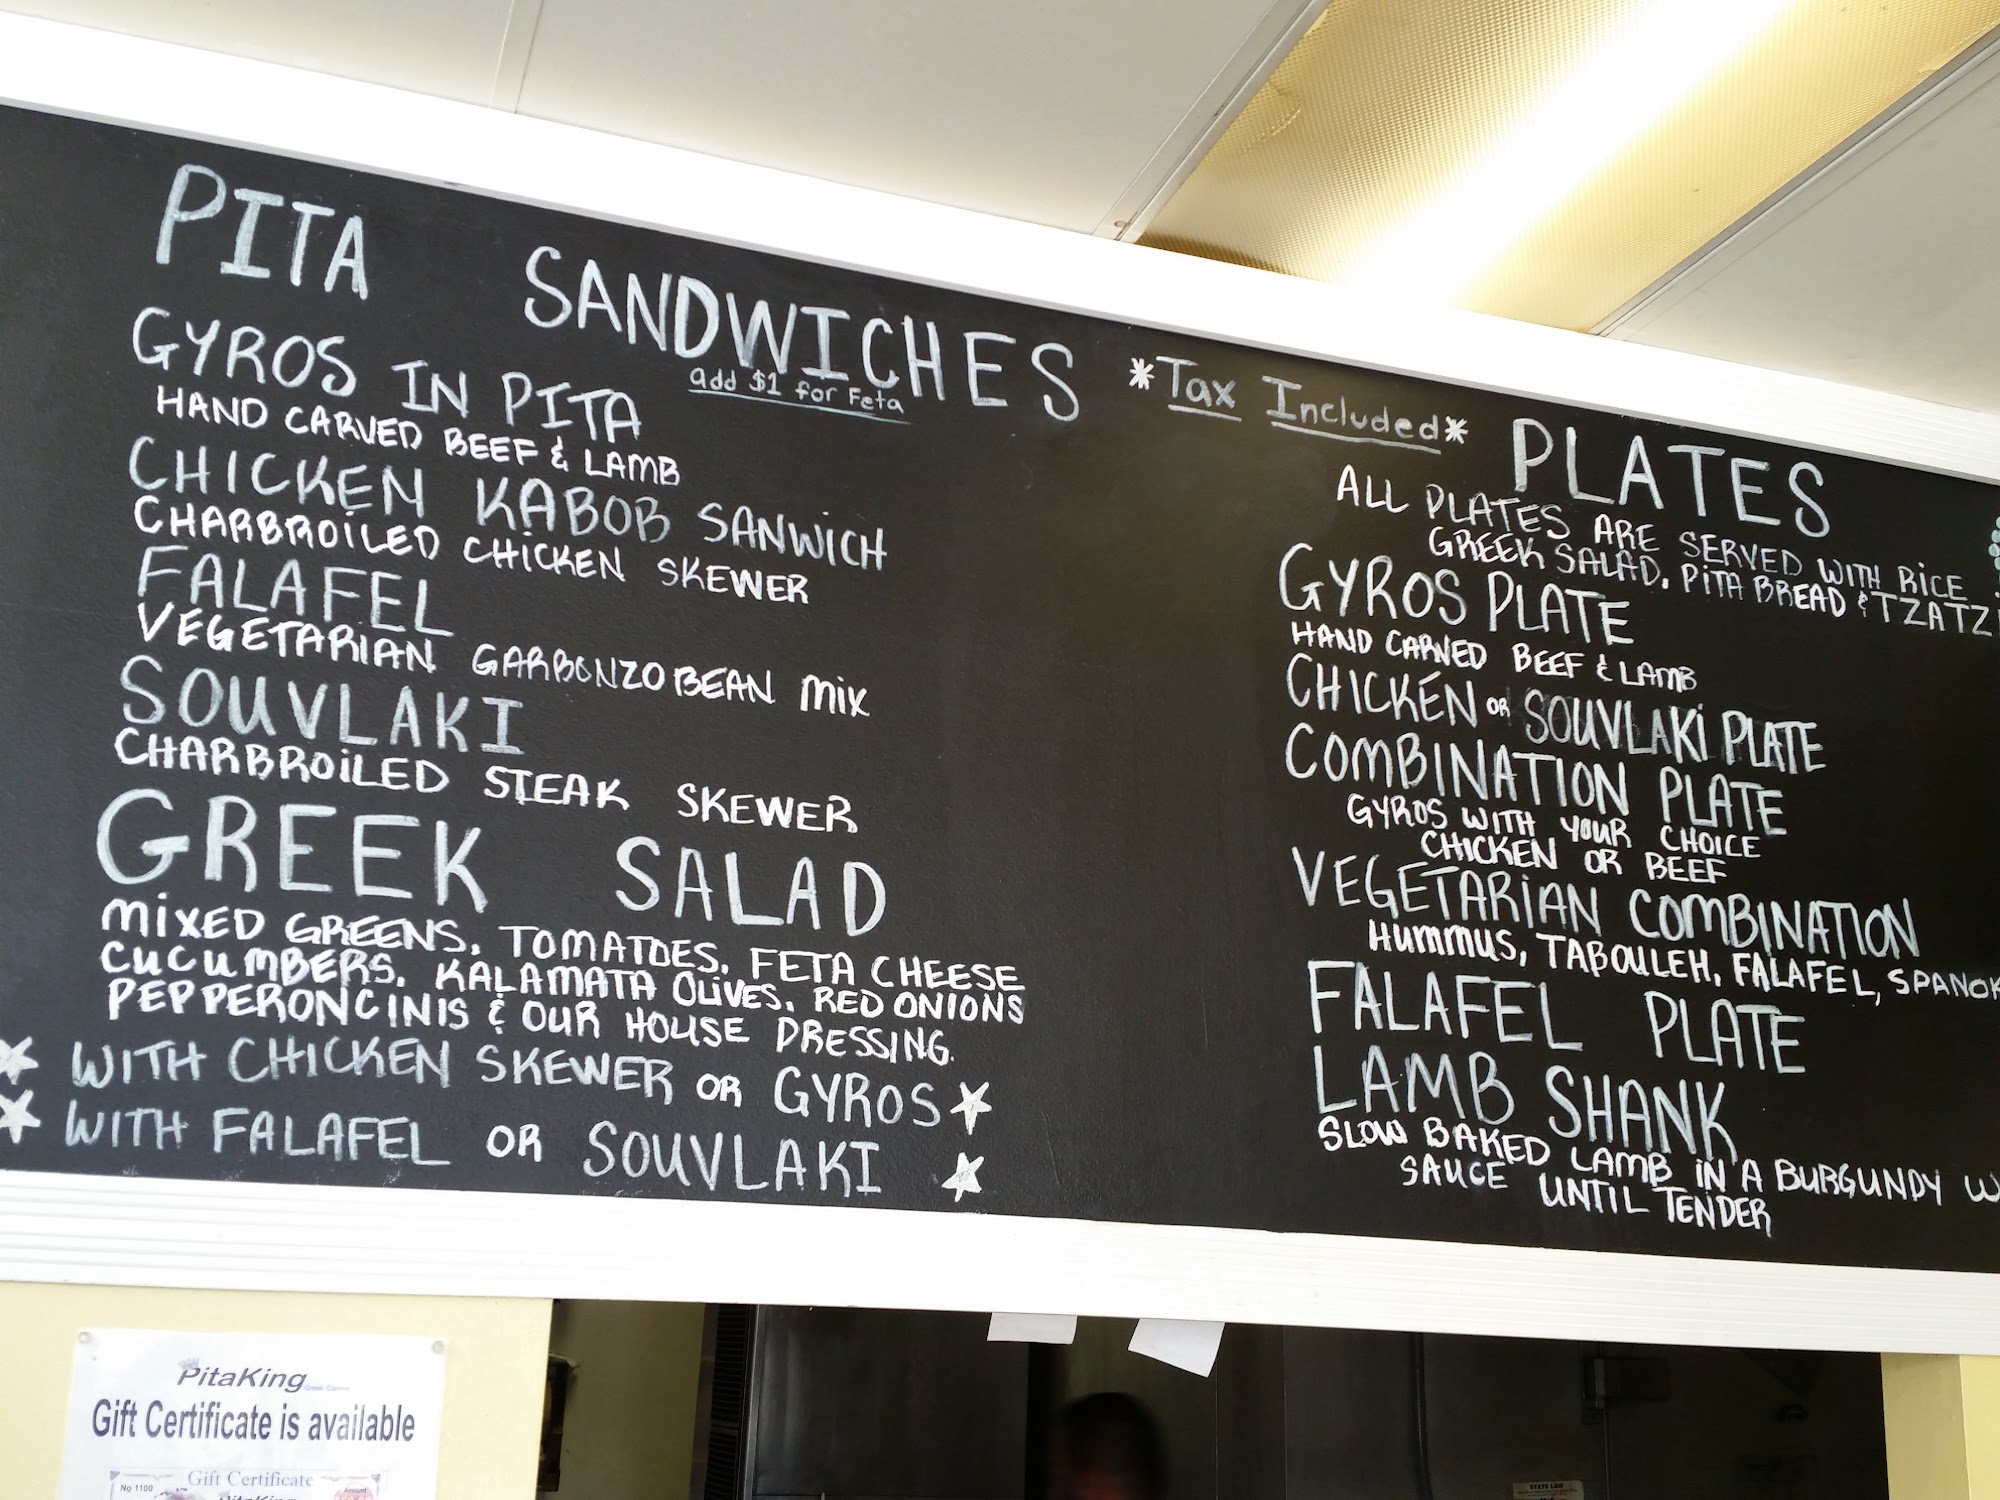 PITA SANDWICHES
add $1 for Feta
GYROS IN PITA
HAND CARVED BEEF & LAMB
CHICKEN KABOB SANWICH
CHARBROILED CHICKEN SKEWER
FALAFEL
VEGETARIAN GARBONZO BEAN MIX
SOUVLAKI
CHARBROILED STEAK SKEWER
GREEK SALAD
MIXED GREENS, TOMATOES, FETA CHEESE
CUCUMBERS, KALAMATA OLIVES, RED ONIONS
PEPPERONCINIS & OUR HOUSE DRESSING.
WITH CHICKEN SKEWER OR GYROS
WITH FALAFEL OR SOUVLAKI
*Tax Included*
PLATES
ALL PLATES ARE SERVED WITH RICE
GREEK SALAD, PITA BREAD & TZATZ
GYROS PLATE
HAND CARVED BEEF & LAMB
CHICKEN OR SOUVLAKI PLATE
COMBINATION PLATE
GYROS WITH YOUR CHOICE
CHICKEN OR BEEF
VEGETARIAN COMBINATION
HUMMUS, TABOULEH, FALAFEL, SPANOK
FALAFEL PLATE
LAMB SHANK
SLOW BAKED LAMB IN A BURGUNDY W
SAUCE UNTIL TENDER
PitaKing
Greek Cuisine
Gift Certificate is available
Gift Certificate
No 1100
Amount
PitaKing
STATE LAW